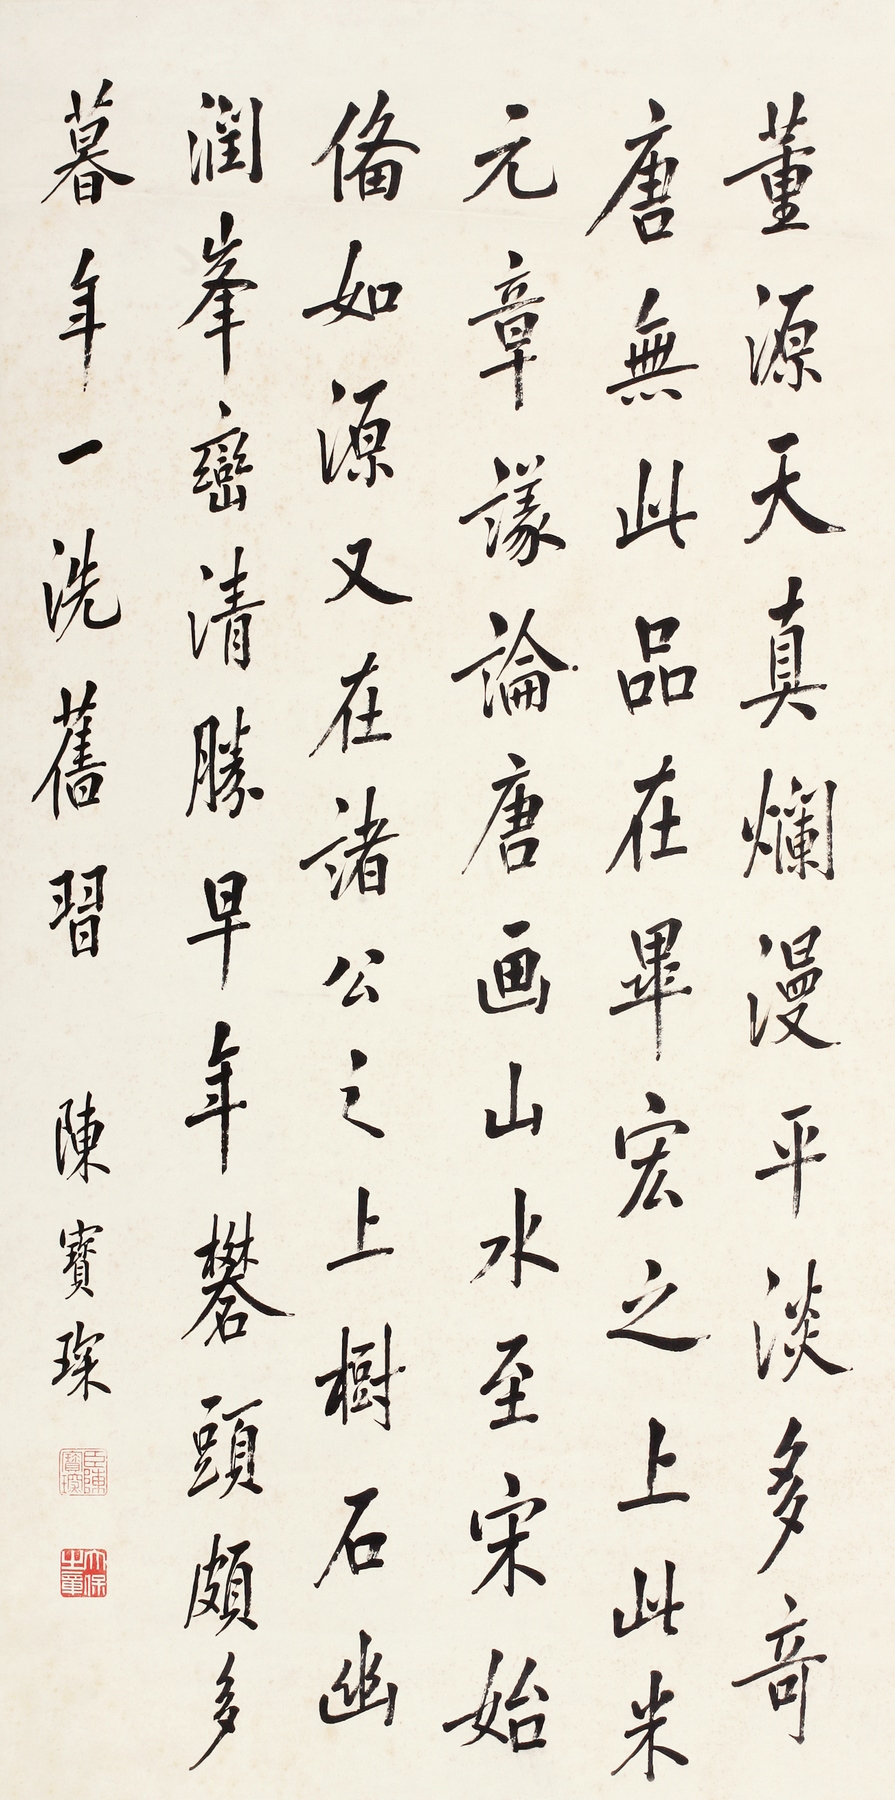 董源天真爛漫平淡多奇
唐無此品在畢宏之上此米
元章議論唐画山水至宋始
俻如源又在諸公之上樹石幽
潤峯巒清勝早年礬頭頗多
暮年一洗舊習
陳寶琛
臣陳寶琛
太保之章